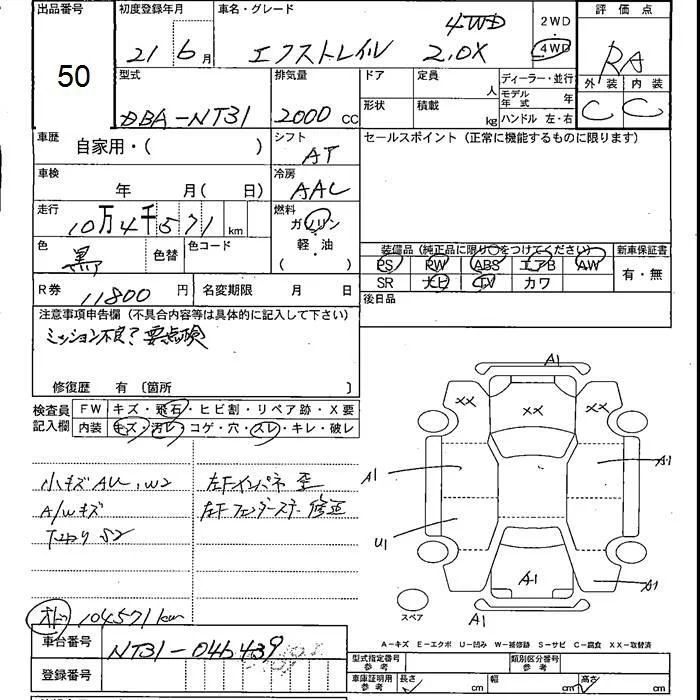 出品番号 初度登録年月 車名・グレード 4WD 2WD 評価点
50 21 6月 エクストレイル 2.0X 4WD RA
外装 内装
型式 排気量 ドア 定員 人 ディーラー・並行
モデル年式 年 C C
DBA-NT31 2000 CC 形状 積載 kg ハンドル 左・右
車歴 シフト セールスポイント (正常に機能するものに限ります)
自家用・( ) AT
車検 冷房
年 月( 日) AAC
走行 燃料
10万4千571km ガソリン
色 黒 色替 色コード 軽・油 ( )
装備品 (純正品に限り○をつけてください) 新車保証書
PS RW ABS エアB AW 有・無
SR ナビ TV カワ
R券 11800円 名変期限 月 日 後日品
注意事項申告欄 (不具合内容等は具体的に記入して下さい)
ミッション不良?要点検
修復歴 有 〔箇所 〕
検査員記入欄 FW キズ・飛石・ヒビ割・リペア跡・X要
内装 キズ・汚レ・コゲ・穴・スレ・キレ・破レ
小キズAU,W2 左Fインパネ 歪
A/Wキズ 左Fフェンダーステー 修正
下廻り S2
オドメ 104571km
A1
XX XX XX
A1 A1
U1
A1 A1
スペア A1
車台番号 NT31-046439
登録番号
A-キズ E-エクボ U-凹み W-補修跡 S-サビ C-腐食 XX-取替済
型式指定番号参考 類別区分番号参考
車庫証明用参考 長さ cm 幅 cm 高さ cm